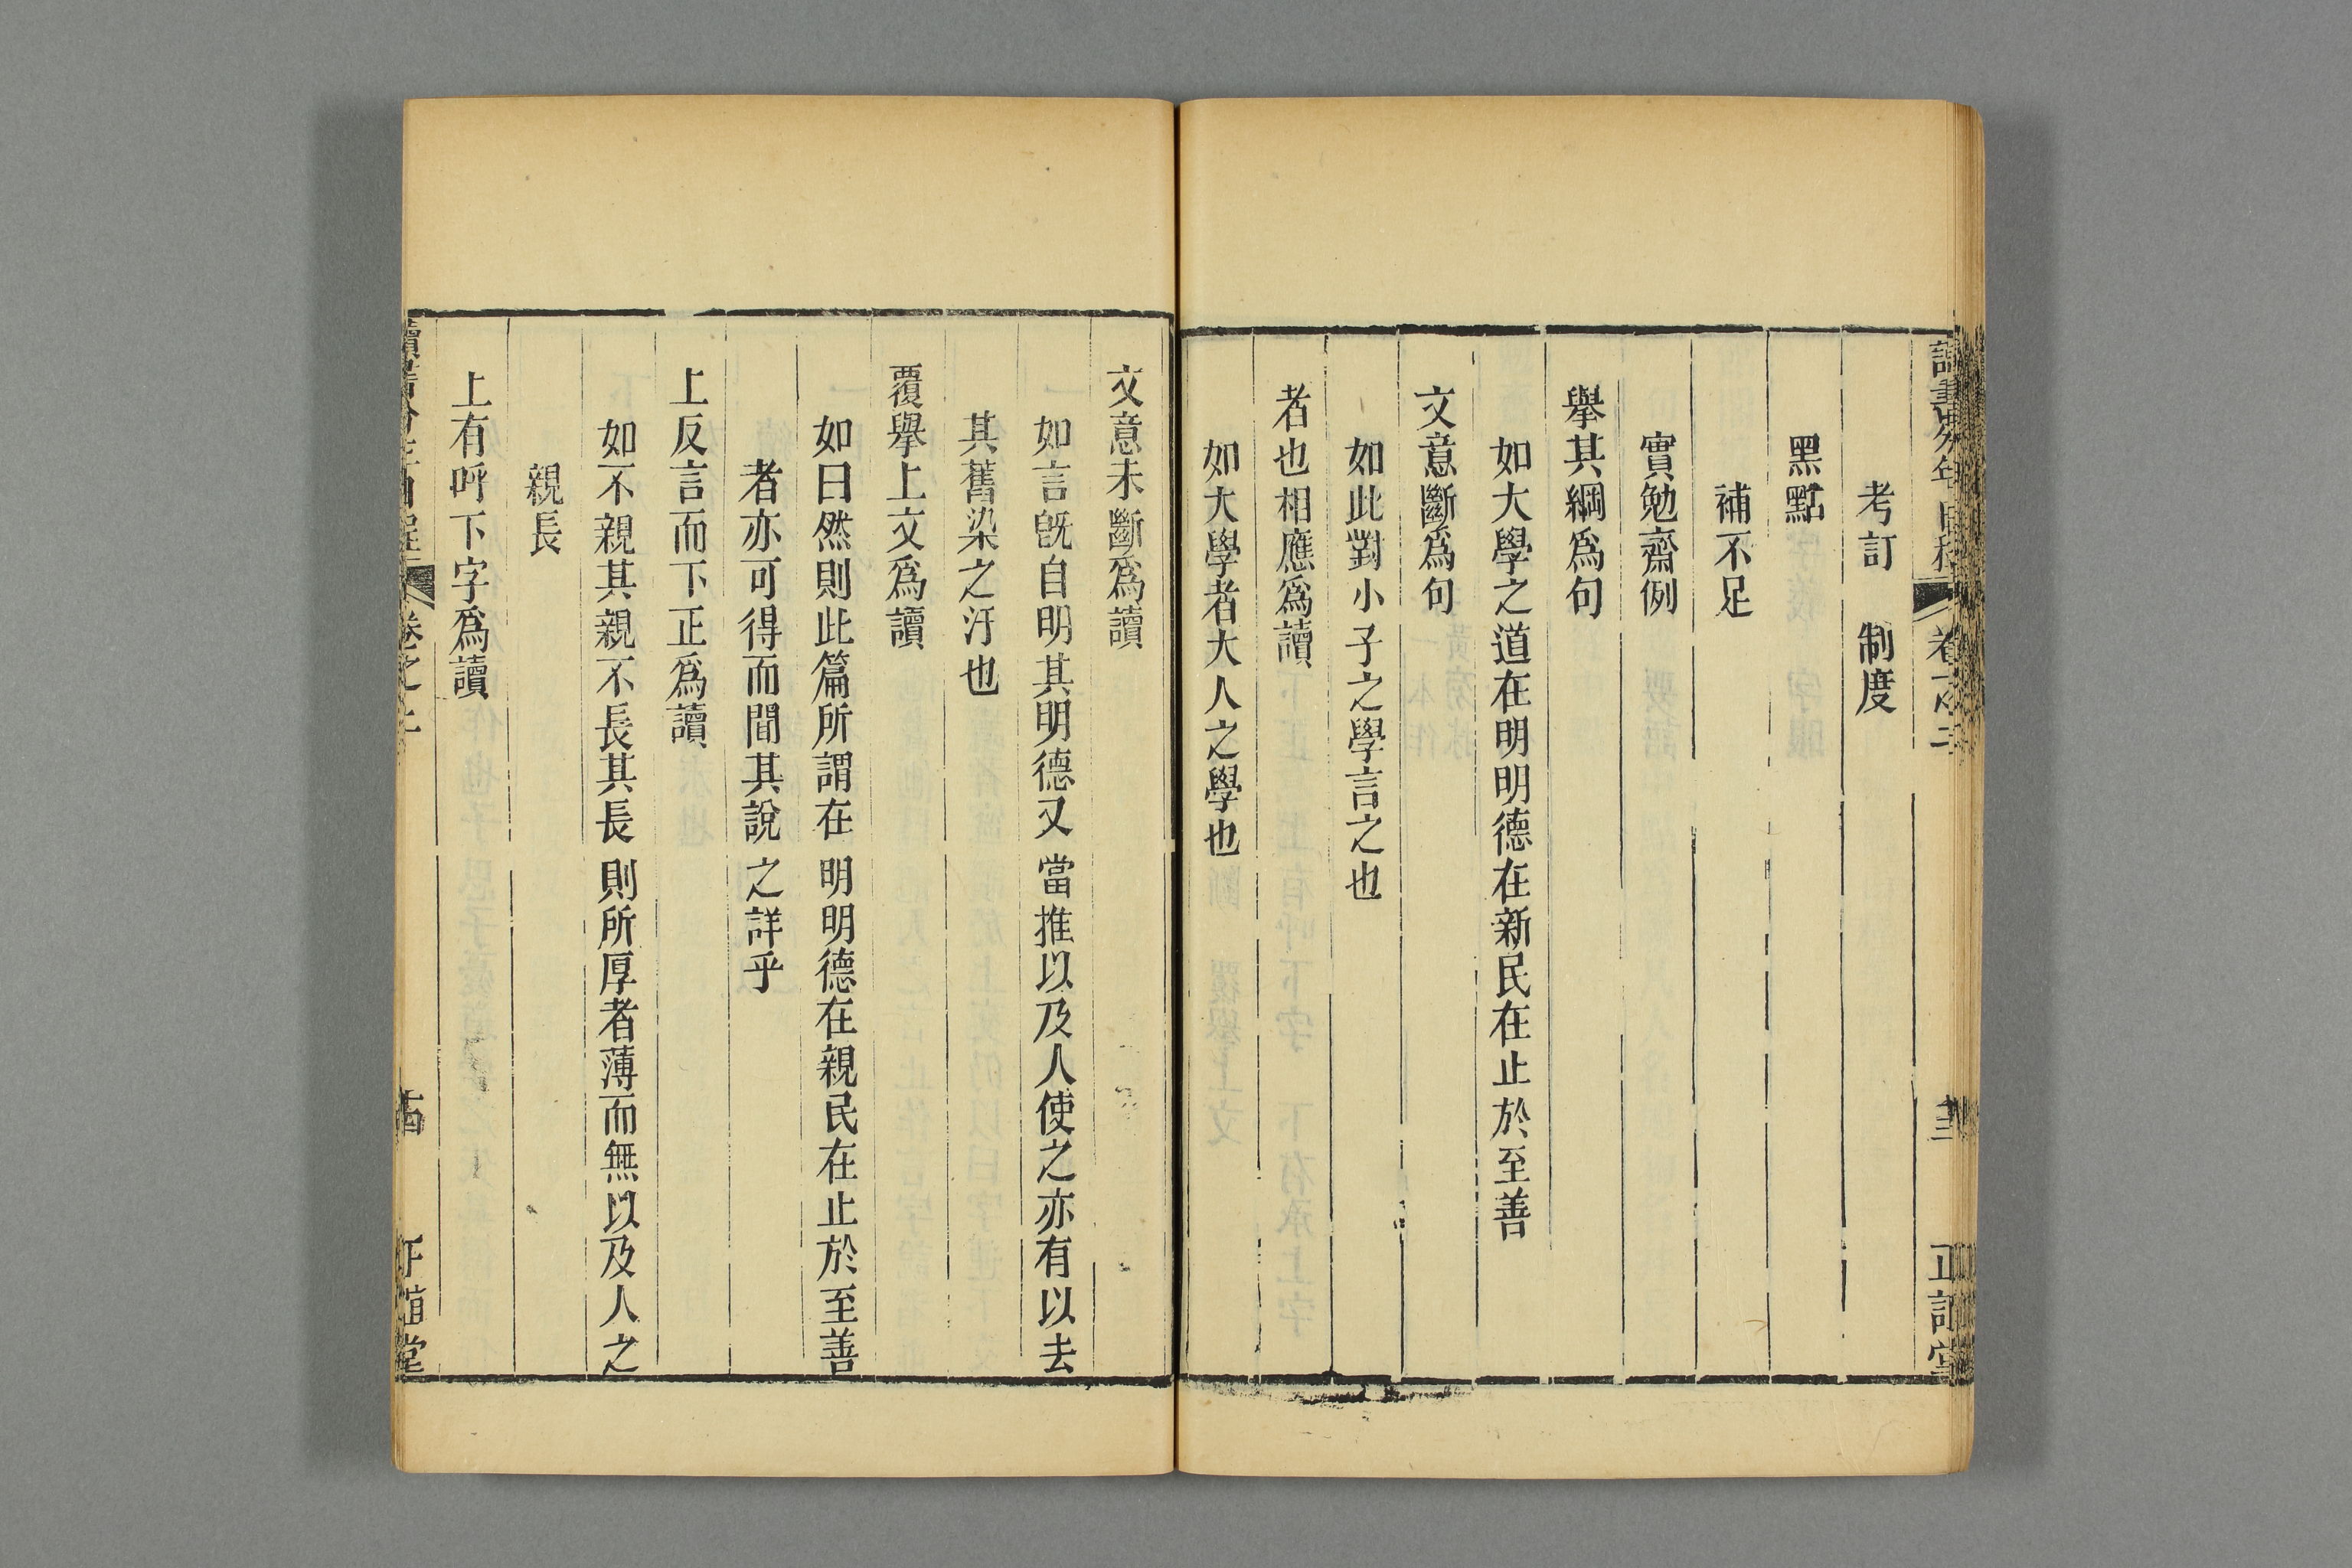 讀書分年日程 卷之二 正誼堂
考訂 制度
黑點
補不足
實勉齋例
舉其綱爲句
如大學之道在明明德在新民在止於至善
文意斷爲句
如此對小子之學言之也
者也相應爲讀
如大學者大人之學也
文意未斷爲讀
如言旣自明其明德又當推以及人使之亦有以去
其舊染之汙也
覆舉上文爲讀
如曰然則此篇所謂在明明德在親民在止於至善
者亦可得而間其說之詳乎
上反言而下正爲讀
如不親其親不長其長則所厚者薄而無以及人之
親長
上有呼下字爲讀
讀書分年日程 卷之二 正誼堂